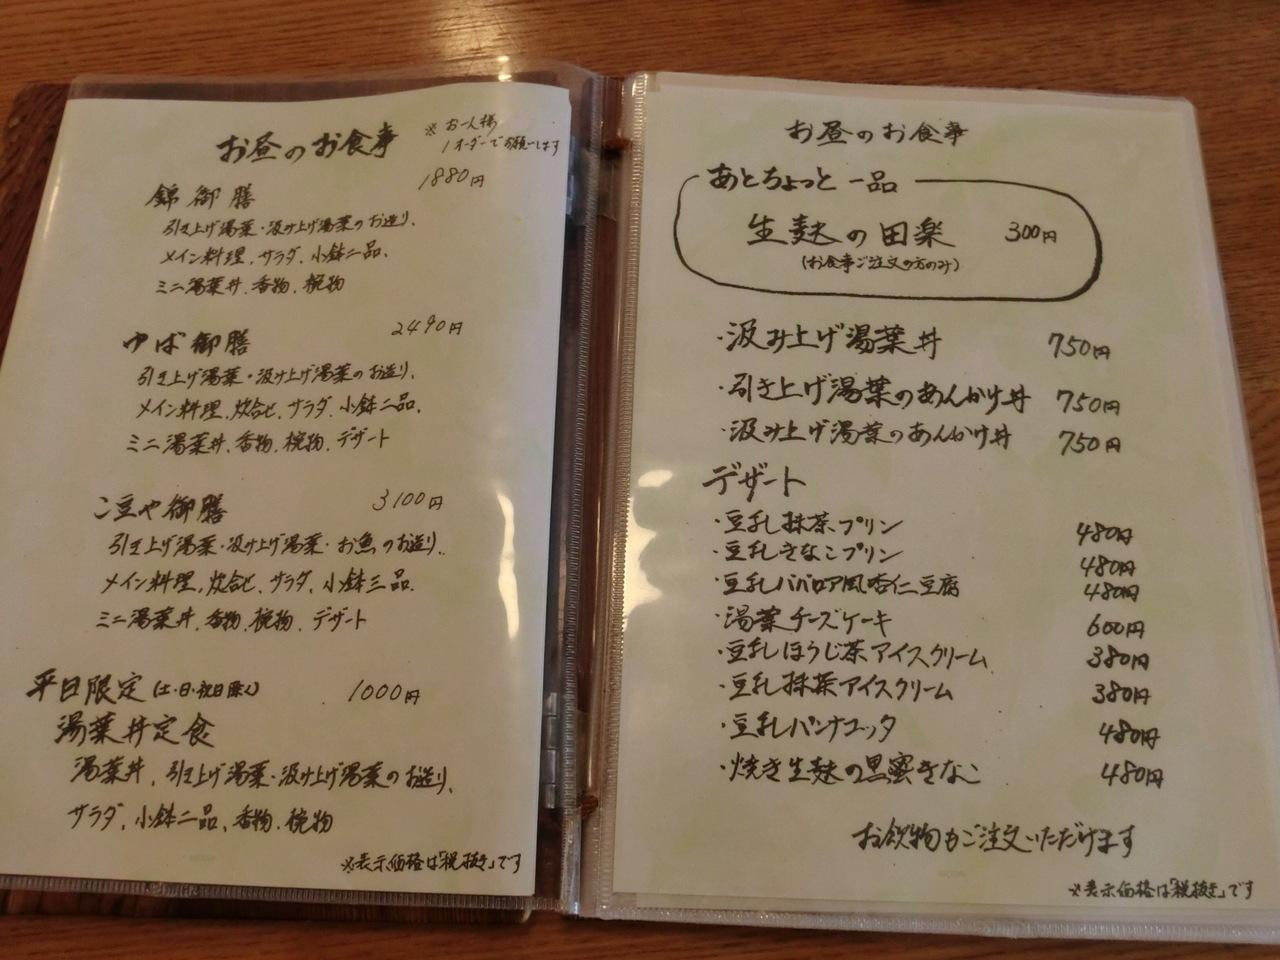 お昼のお食事
※お一人様
1オーダーでお願いします
錦御膳 1880円
引き上げ湯葉・汲み上げ湯葉のお造り、
メイン料理、サラダ、小鉢二品、
ミニ湯葉丼、香物、椀物
ゆば御膳 2490円
引き上げ湯葉・汲み上げ湯葉のお造り、
メイン料理、炊合せ、サラダ、小鉢二品、
ミニ湯葉丼、香物、椀物、デザート
こ豆や御膳 3100円
引き上げ湯葉・汲み上げ湯葉・お魚のお造り、
メイン料理、炊合せ、サラダ、小鉢三品、
ミニ湯葉丼、香物、椀物、デザート
平日限定(土・日・祝日除く) 1000円
湯葉丼定食
湯葉丼、引き上げ湯葉・汲み上げ湯葉のお造り、
サラダ、小鉢二品、香物、椀物
※表示価格は「税抜き」です
お昼のお食事
あとちょっと一品
生麸の田楽 300円
(お食事ご注文の方のみ)
・汲み上げ湯葉丼 750円
・引き上げ湯葉のあんかけ丼 750円
・汲み上げ湯葉のあんかけ丼 750円
デザート
・豆乳抹茶プリン 480円
・豆乳きなこプリン 480円
・豆乳ババロア風杏仁豆腐 480円
・湯葉チーズケーキ 600円
・豆乳ほうじ茶アイスクリーム 380円
・豆乳抹茶アイスクリーム 380円
・豆乳パンナコッタ 480円
・焼き生麸の黒蜜きなこ 480円
お飲物もご注文いただけます
※表示価格は「税抜き」です